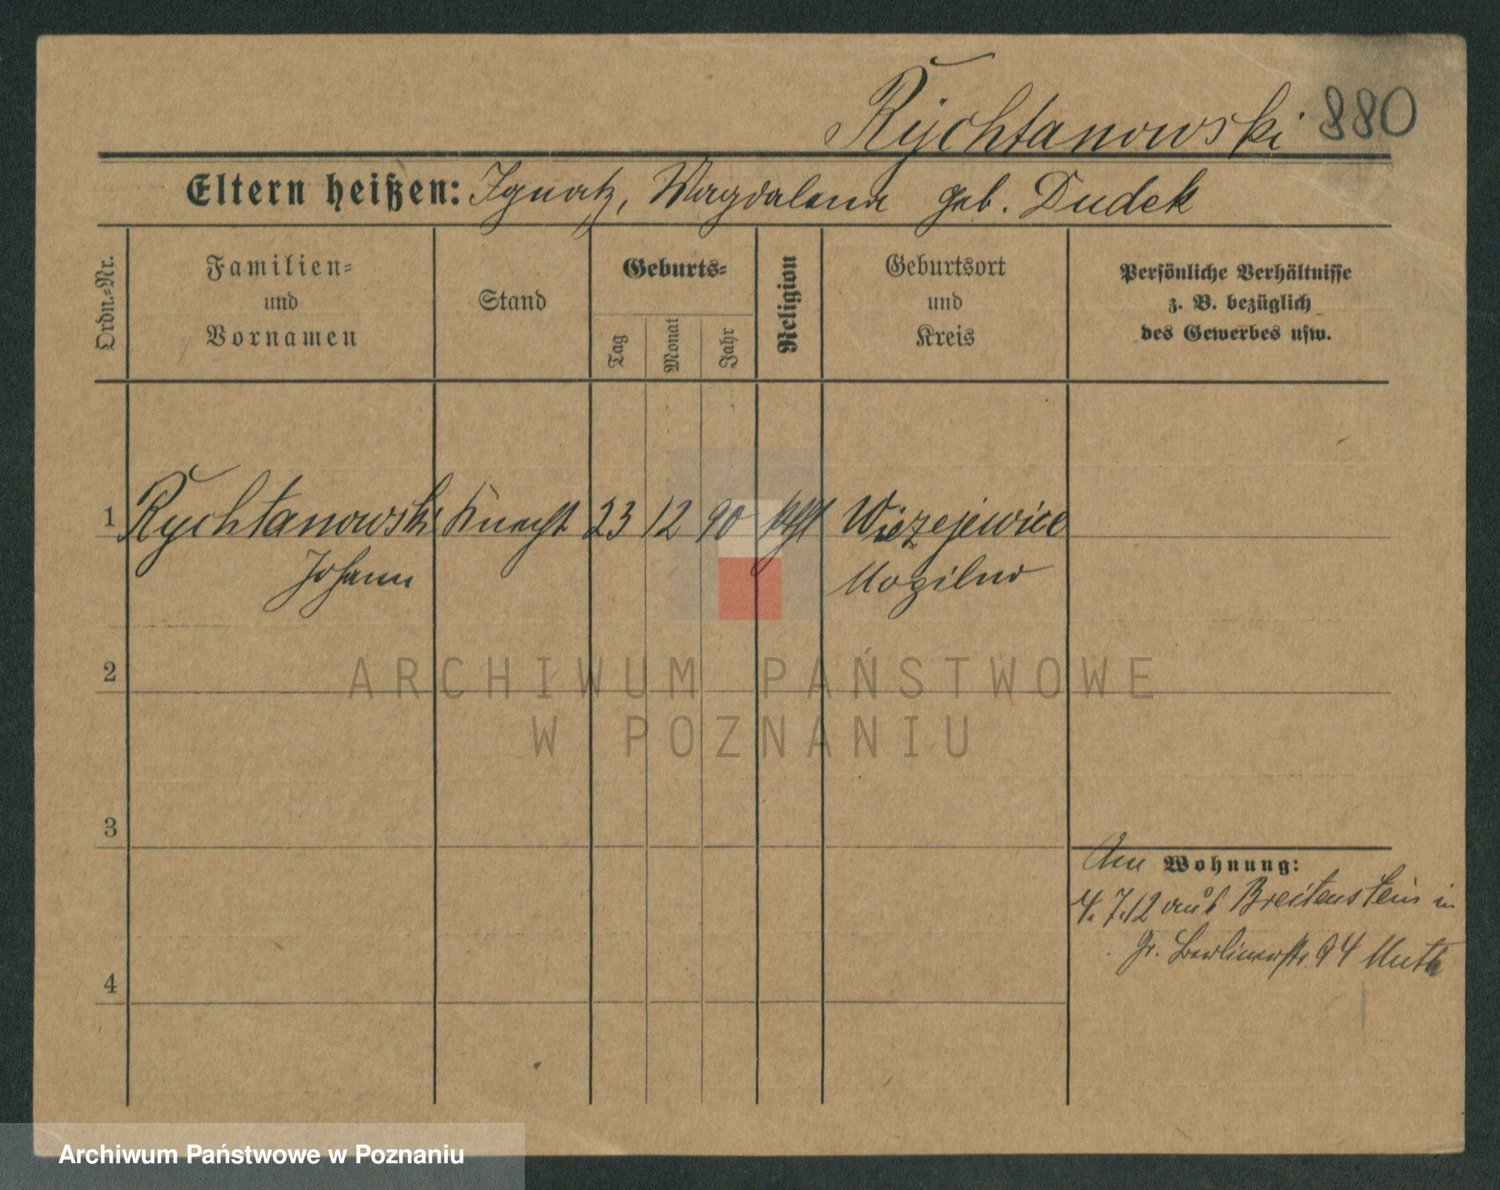 Rychtanowski 880
Eltern heißen: Ignatz, Magdalena geb. Dudek
Ordn.-Nr.
Familien-
und
Vornamen
Stand
Geburts-
Tag
Monat
Jahr
Religion
Geburtsort
und
Kreis
Persönliche Verhältnisse
z. B. bezüglich
des Gewerbes usw.
1 Rychtanowski Knecht 23 12 90 kath Wiezejewice
Johann Mogilno
2
3
4
Wohnung:
4. 7.12 aus Breitenstein in
Gr. Berlinerstr. 94 Muth
ARCHIWUM PAŃSTWOWE
W POZNANIU
Archiwum Państwowe w Poznaniu